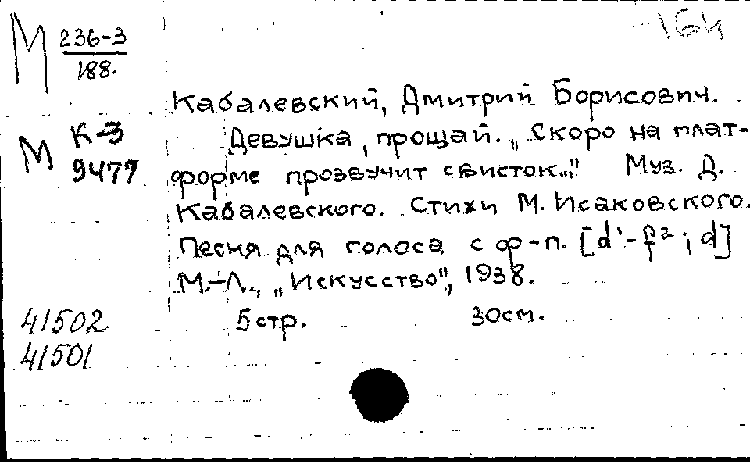 164
М 236-3
188.
Кабалевский, Дмитрий Борисович.
М К-3
9477
Девушка, прощай. „Скоро на плат-
форме прозвучит свисток..." Муз. Д.
Кабалевского. Стихи М. Исаковского.
Песня для голоса с ф-п. [d'-f²; d]
М.-Л., „Искусство", 1938.
41502 5 стр. 30см.
41501